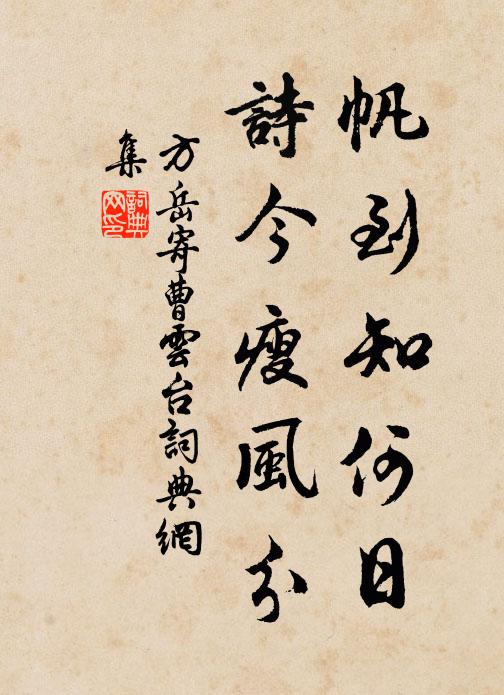 帆到知何日
詩今瘦風分
方岳寄曹雲台詞典網
集
詞典網印